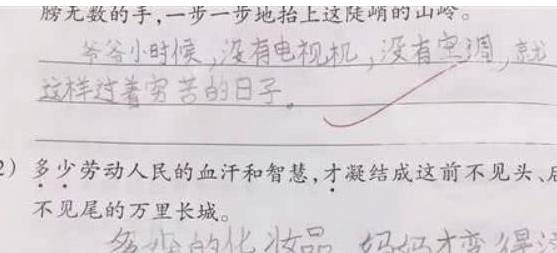 膀无数的手,一步一步地抬上这陡峭的山岭。
爷爷小时候,没有电视机,没有空调,就
这样过着穷苦的日子。
2) 多少劳动人民的血汗和智慧,才凝结成这前不见头、后
不见尾的万里长城。
多少的化妆品 妈妈才变得